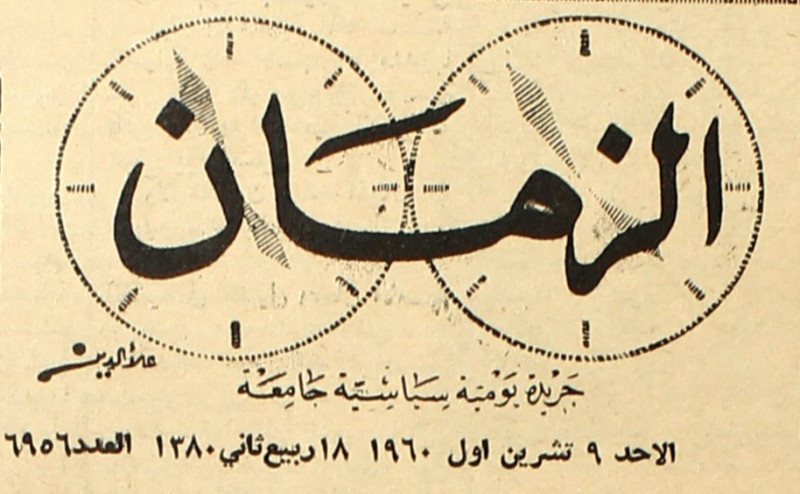 الزمان
علاء الدين
جريدة يومية سياسية جامعة
الاحد ٩ تشرين اول ١٩٦٠ ١٨ ربيع ثاني ١٣٨٠ العدد ٦٩٥٦